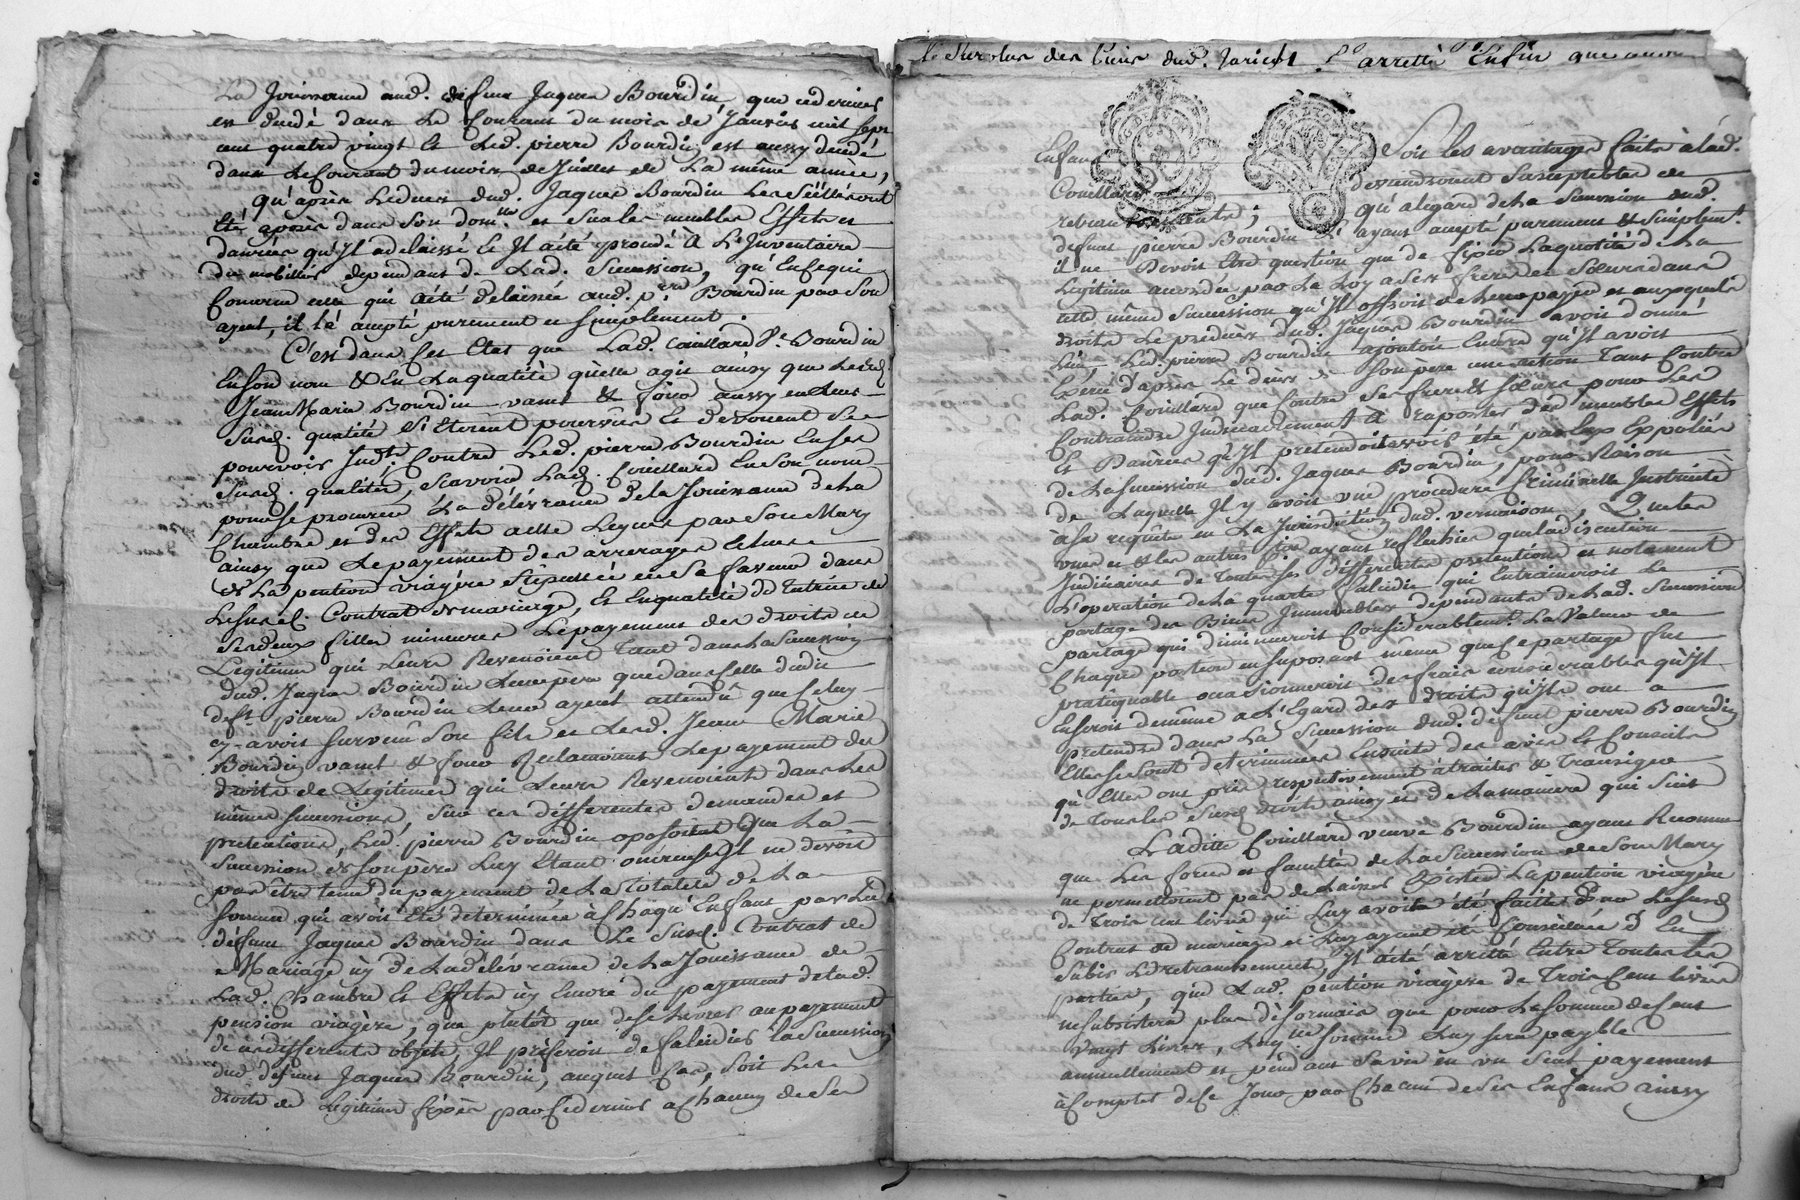 La Jouissance aud. défunt Jaques Bourdin, que ce dernier
est décédé dans le Courant du mois de Janvier mil sept
cent quatre vingt et led. pierre Bourdin est aussy décédé
dans le Courant du mois de Juillet de La même année,
qu'après Le décès dud. Jaques Bourdin Les Scéllés ont
été aposés dans son dom.lle et sur les meubles Effets et
danrées qu'Il a delaissé et Il a été procédé A L'Inventaire
du mobillier dependant de Lad. Succession, qu'En ce qui
Concerne celle qui a été délaissée aud. p.rre Bourdin par son
ayeul, il l'a accepté purement et simplement.
C'est dans cet Etat que Lad. Couillard V.e Bourdin
En son nom & En La qualité qu'elle agit ainsy que Lesd.
Jean Marie Bourdin vant & fond aussy en Leur
Susd. qualité S'Etoient pourvus et devoient se
pourvoir Jud.t Contre Led. pierre Bourdin En ses
Susd. qualités, Scavoir Lad. Couillard En son nom
pour se procurer La délivrance de la Jouissance de La
Chambre et des Effets a elle Legués par Son Mary
ainsy que Le payement des arrerages Echus
de La pention viagère Stipullée en sa faveur dans
Le susd. Contrat de mariage, Et En qualité de Tutrice de
ses deux filles mineures Le payement des droits de
Légitime qui Leurs Revenoient Tant dans La Succession
dud. Jaques Bourdin Leur pere que dans Celle dudit
def.t pierre Bourdin Leur ayeul attendu que Celuy
cy avoit survecu Son fils et Lesd. Jean Marie
Bourdin vant & fond Réclamoient Le payement des
droits de Légitimes qui Leurs Revenoient dans Les
mêmes successions, Sur ces différentes demandes et
prétentions, Led. pierre Bourdin oposoit que La
Succession de son père Luy Etant onéreuse Il ne devoit
pas être tenu du payement de La Totalité de La
Somme qui avoit Eté déterminée à Chaqu'Enfant par Led.
défunt Jaques Bourdin dans Le Susd. Contrat de
Mariage ny de La délivrance de La Jouissance de
Lad. Chambre Et Effets ny Encore du payement de Lad.
pension viagère, que plutôt que de se Livrer au payement
de ces differents objets, Il préferoit de falcidier la Succession
dud. défunt Jaques Bourdin, auquel Cas, Soit Les
droits de Légitime fixés par ce dernier a Chacun de Ses
le Surplus des biens dud. 8.º arretté Enfin que
Enfans Soit Les avantages faits à Lad.
Couillard deviendroient Susceptibles de
retranchements; qu'a legard de La Succession dud.
défunt pierre Bourdin L'ayant accepté purement & simplem.t
il ne Devoit être question que de fixer La quotité de La
Légitime accordée par La Loy a Ses freres et Sœurs dans
cette même Succession qu'Il offroit de Leur payer et auxquels
droits Le prédécès dud. Jaques Bourdin avoit donné
Lieu, Led. pierre Bourdin ajoutoit Encore qu'Il avoit
Lad. Couillard que Contre Ses freres & Sœurs pour Les
Contraindre Judiciairement A Raporter des meubles Effets
Et Danrées qu'Il prétendoit avoir été par Eux Expoliés
de La Succession dud. Jaques Bourdin, pour Raison
de Laquelle Il y avoit une procedure Criminelle Instruite
à Sa requête en La Jurisdiction dud. vernaison,
ayant reflechies que La discution
Judiciaire de Toutes Les differentes pretentions et notament
L'operation de La quarte falcidie qui Entraineroit Le
partage des Biens Immeubles dependants de Lad. Succession
partage qui diminueroit Considerablem.t La Valeur de
Chaque portion en suposant même que Ce partage fut
pratiquable occasionneroit des frais considerables qu'Il
En seroit de même a L'Egard des droits qu'Ils ont a
prétendre dans La Succession dud. défunt pierre Bourdin
Elles se sont determinées Ensuite des avis Et Conseils
qu'Elles ont pris respectivement à traiter & Transiger
de Tous Les Susd. droits ainsy et de La maniere qui Suit
Laditte Couillard veuve Bourdin ayant Reconnu
que Les forces et facultés de La Succession de Son Mary
ne permettoient pas de Laisser Exister La pention viagère
de Trois cent livres qui Luy avoit été faitte par Le susd.
Contrat de mariage et Luy ayant été Conseillée d'En
Subir Le retranchement, Il a été arretté Entre Toutes Les
parties, que Lad. pention viagère de Trois Cent livres
ne subsistera plus désormais que pour La somme de Cent
Vingt Livres, Laq.lle somme Luy sera payable
annuellement et pendant Sa vie en un Seul payement
à Compter de Ce Jour par Chacun de Ses Enfans ainsy